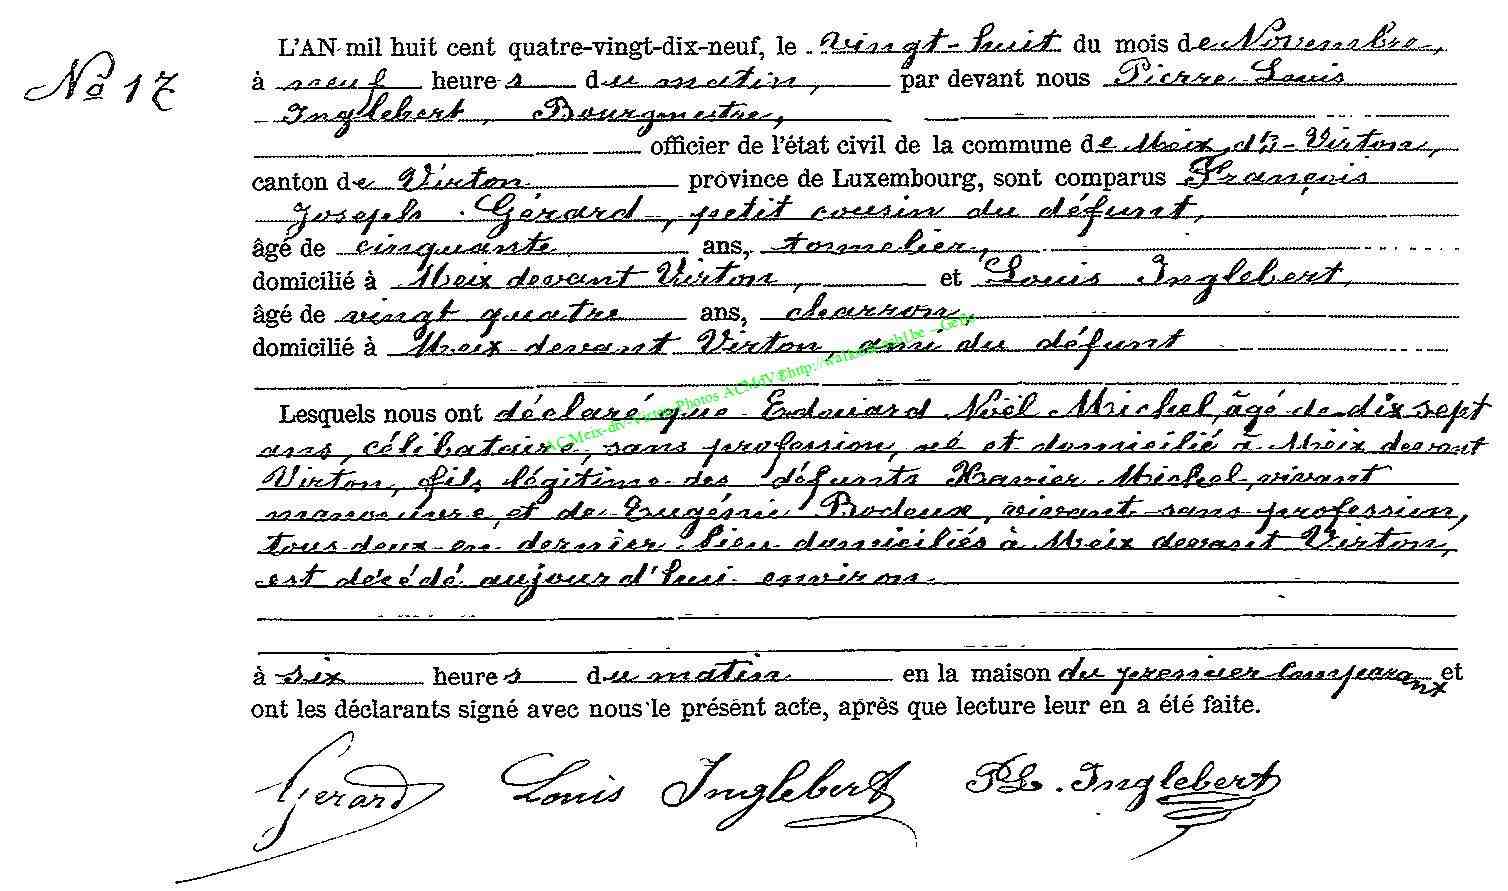 L'AN mil huit cent quatre-vingt-dix-neuf, le vingt-huit du mois de Novembre,
No 17
à neuf heures du matin, par devant nous Pierre Louis
Inglebert, Bourgmestre,
officier de l'état civil de la commune de Meix dt-Virton,
canton de Virton province de Luxembourg, sont comparus François
Joseph Gérard, petit cousin du défunt,
âgé de cinquante ans, tonnelier,
domicilié à Meix devant Virton, et Louis Inglebert,
âgé de vingt quatre ans, charron,
domicilié à Meix devant Virton, ami du défunt
Lesquels nous ont déclaré que Edouard Noël Michel, âgé de dix sept
ans, célibataire, sans profession, né et domicilié à Meix devant
Virton, fils légitime des défunts Xavier Michel, vivant
manoeuvre, et de Eugénie Bodeux, vivant sans profession,
tous deux en dernier lieu domiciliés à Meix devant Virton,
est décédé aujourd'hui environ
à six heures du matin en la maison du premier comparant et
ont les déclarants signé avec nous le présent acte, après que lecture leur en a été faite.
Gerard Louis Inglebert PL. Inglebert